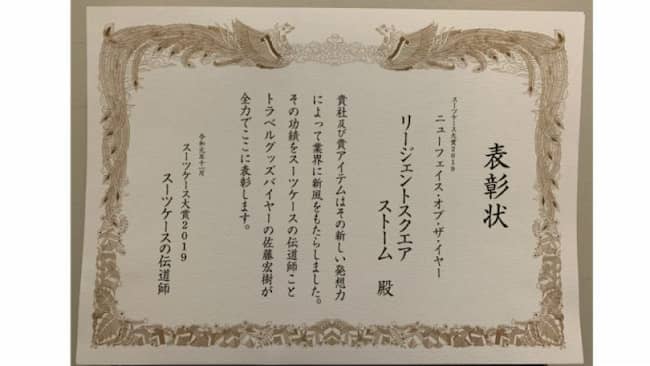 表彰状
スーツケース大賞2019
ニューフェイス・オブ・ザ・イヤー
リージェントスクエア
ストーム 殿
貴社及び貴アイテムはその新しい発想力
によって業界に新風をもたらしました。
その功績をスーツケースの伝道師こと
トラベルグッズバイヤーの佐藤宏樹が
全力でここに表彰します。
令和元年十二月
スーツケース大賞2019
スーツケースの伝道師